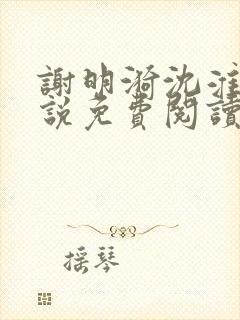 謝明漪沈淮
說免費閱讀
搖琴